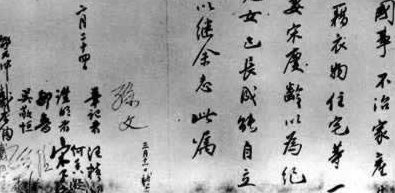 國事不治家產
籍衣物住宅等一
妻宋慶齡以為紀
兒女已長成能自立
以繼余志此
孫文
三月十一日
二月二十四
筆記者 汪精
證明者 宋子文
何香凝
鄒魯
吳敬恆
戴恩賽